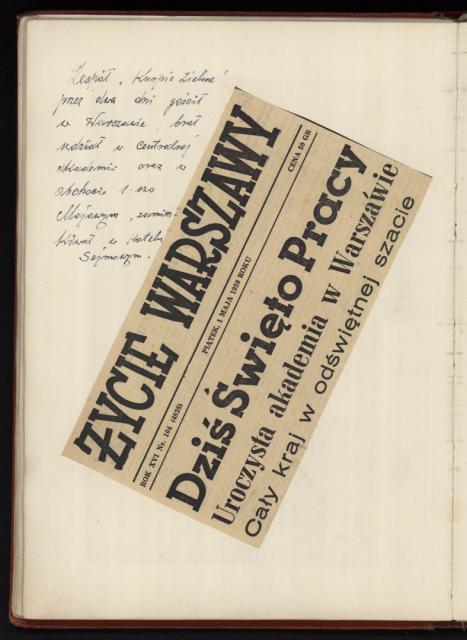 Zespół „Kurpie Zielone"
przez dwa dni gościł
w Warszawie brał
udział w Centralnej
akademii oraz w
obchodzie 1-szo
Majowym, zamiesz
kiwał w Hotelu
Sejmowym.
ŻYCIE WARSZAWY
ROK XVI Nr. 104 (4838) PIĄTEK, 1 MAJA 1959 ROKU CENA 50 GR
Dziś Święto Pracy
Uroczysta akademia w Warszawie
Cały kraj w odświętnej szacie